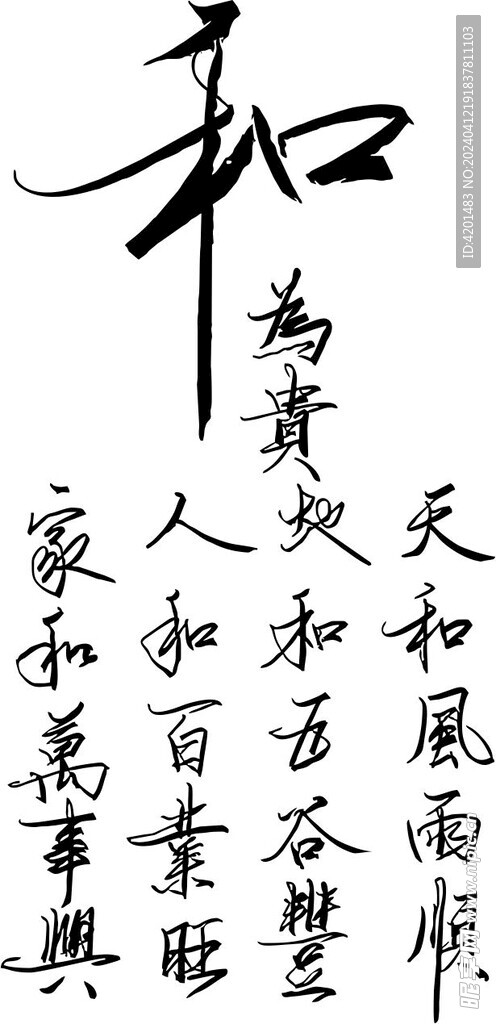 和
為貴
天和風雨順
地和五谷豐
人和百業旺
家和萬事興
ID:4201483 NO:20240412191837811103
昵享网 www.nipic.cn